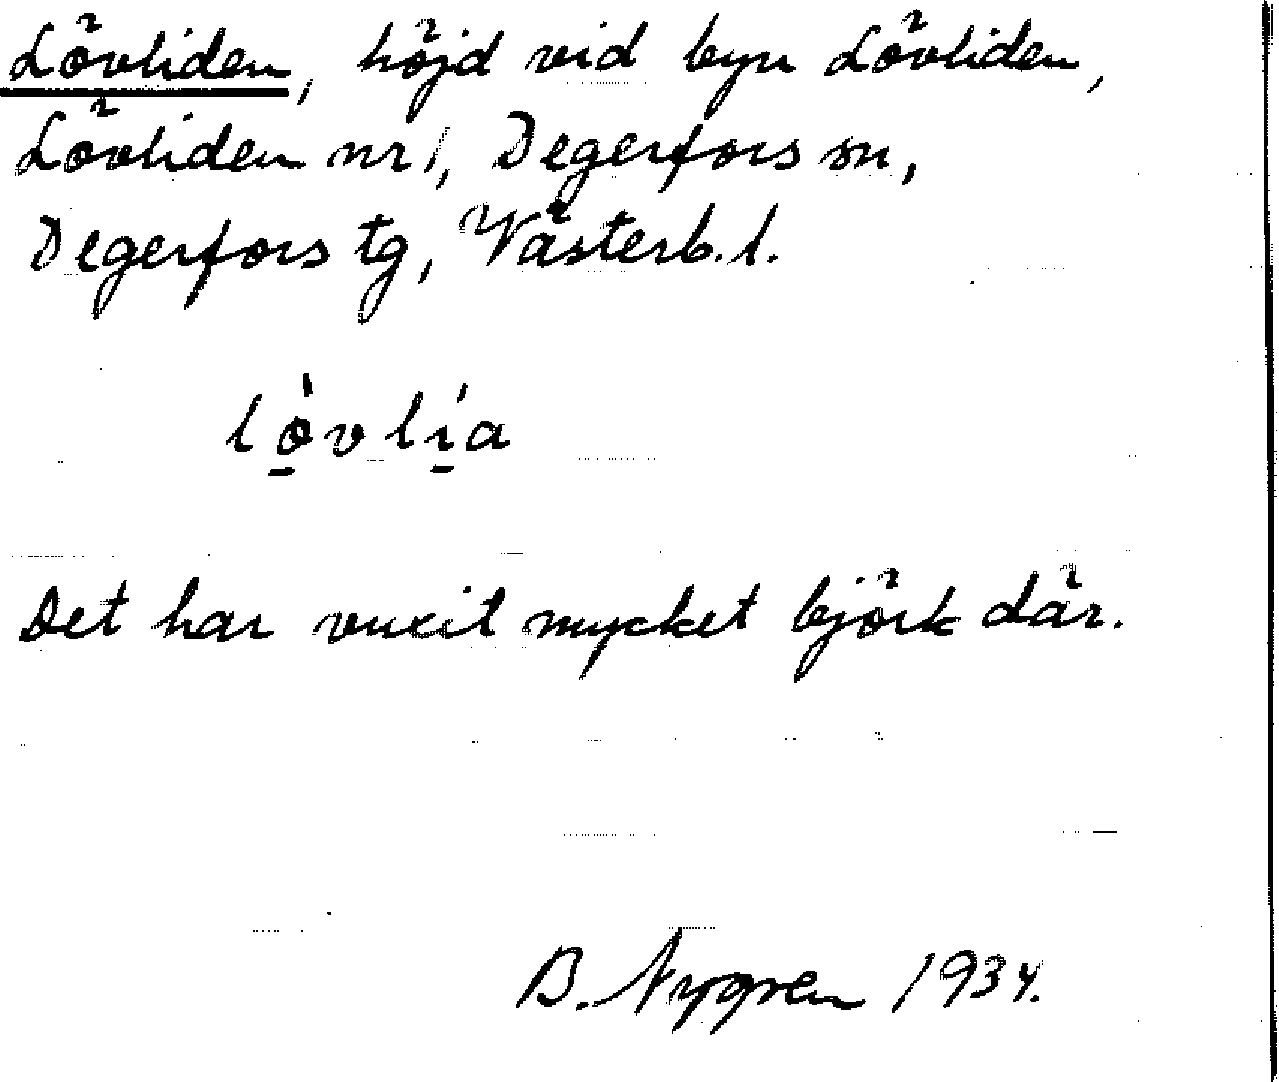 Lövliden, höjd vid byn Lövliden,
Lövliden nr 1, Degerfors sn,
Degerfors tg, Västerb. l.
lo̱̍vli̱̍a
Det har vuxit mycket björk där.
B. Nygren 1934.